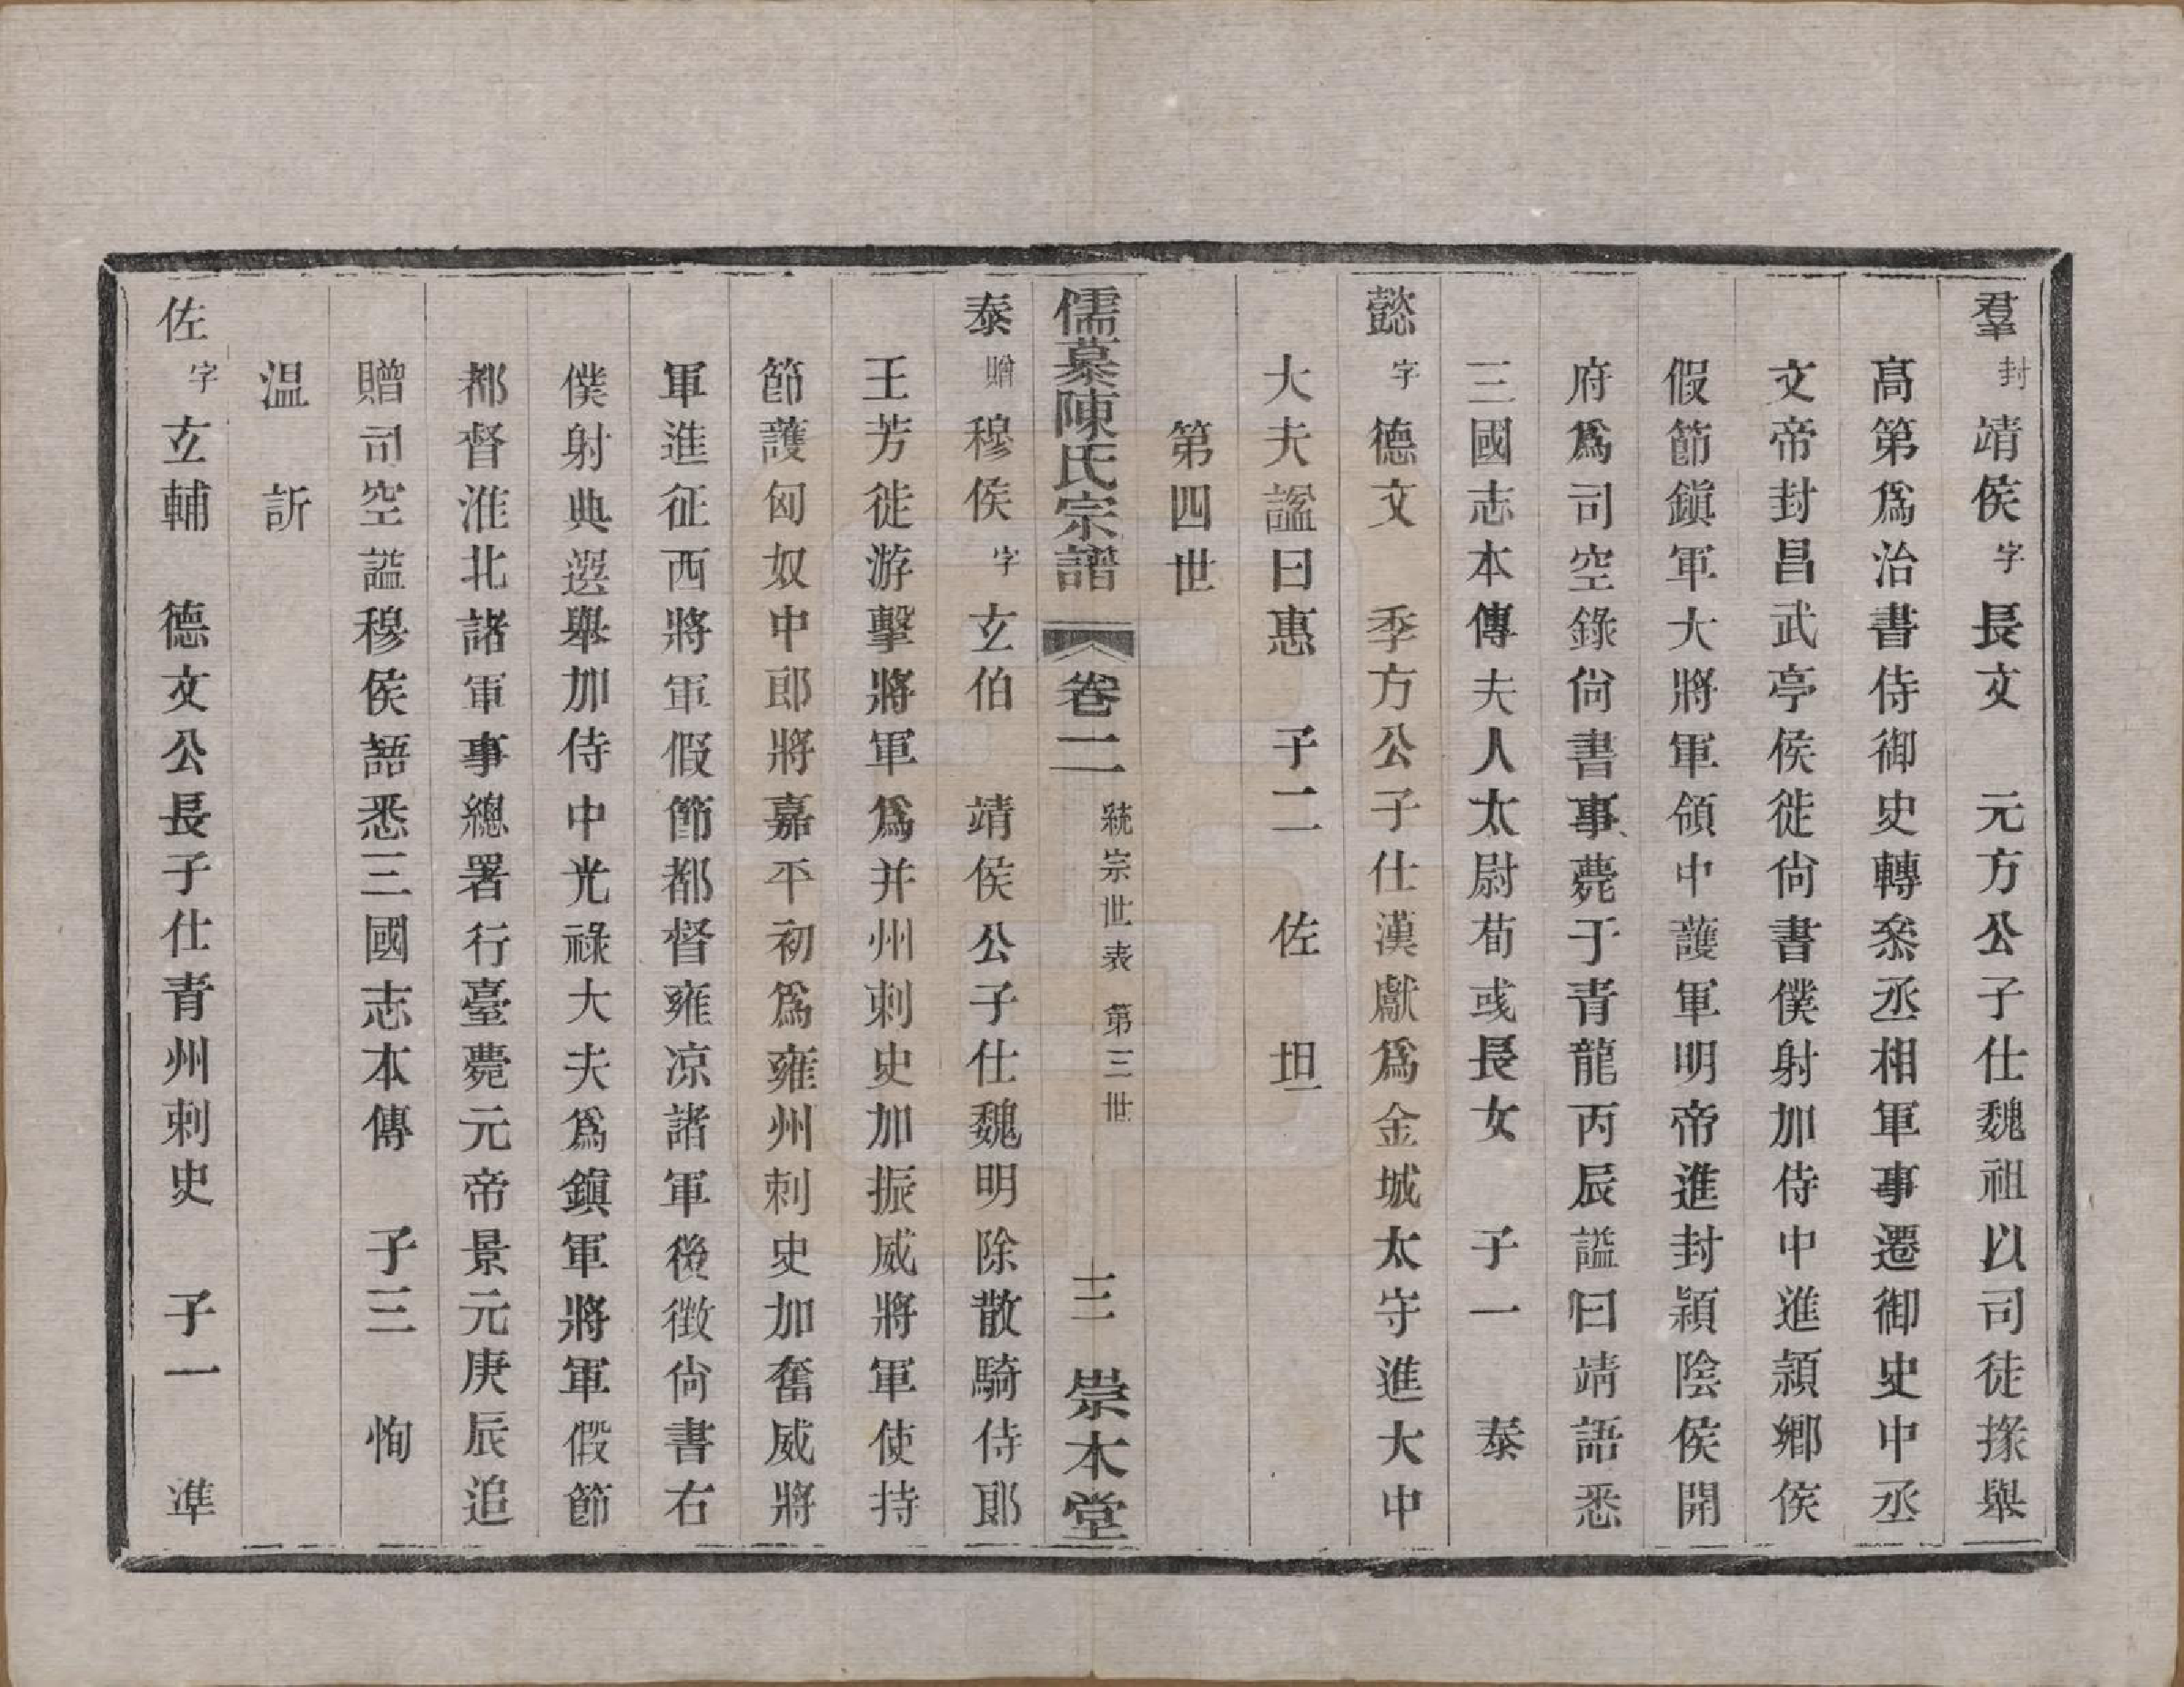 羣封靖侯字長文　元方公子仕魏祖以司徒掾舉
高第爲治書侍御史轉叅丞相軍事遷御史中丞
文帝封昌武亭侯徙尙書僕射加侍中進潁鄉侯
假節鎭軍大將軍領中護軍明帝進封潁陰侯開
府爲司空錄尙書事薨于青龍丙辰謚曰靖語悉
三國志本傳夫人太尉荀彧長女　子一　泰
懿字德文　季方公子仕漢獻爲金城太守進大中
大夫謚曰惠　子二　佐　坦
第四世
儒慕陳氏宗譜　卷二　統宗世表　第三世　三　崇本堂
泰贈穆侯字玄伯　靖侯公子仕魏明除散騎侍郎
王芳徙游擊將軍爲并州刺史加振威將軍使持
節護匈奴中郎將嘉平初爲雍州刺史加奮威將
軍進征西將軍假節都督雍凉諸軍後徵尙書右
僕射典選舉加侍中光祿大夫爲鎭軍將軍假節
都督淮北諸軍事總署行臺薨元帝景元庚辰追
贈司空謚穆侯語悉三國志本傳　子三　恂
温　訢
佐字玄輔　德文公長子仕青州刺史　子一　準